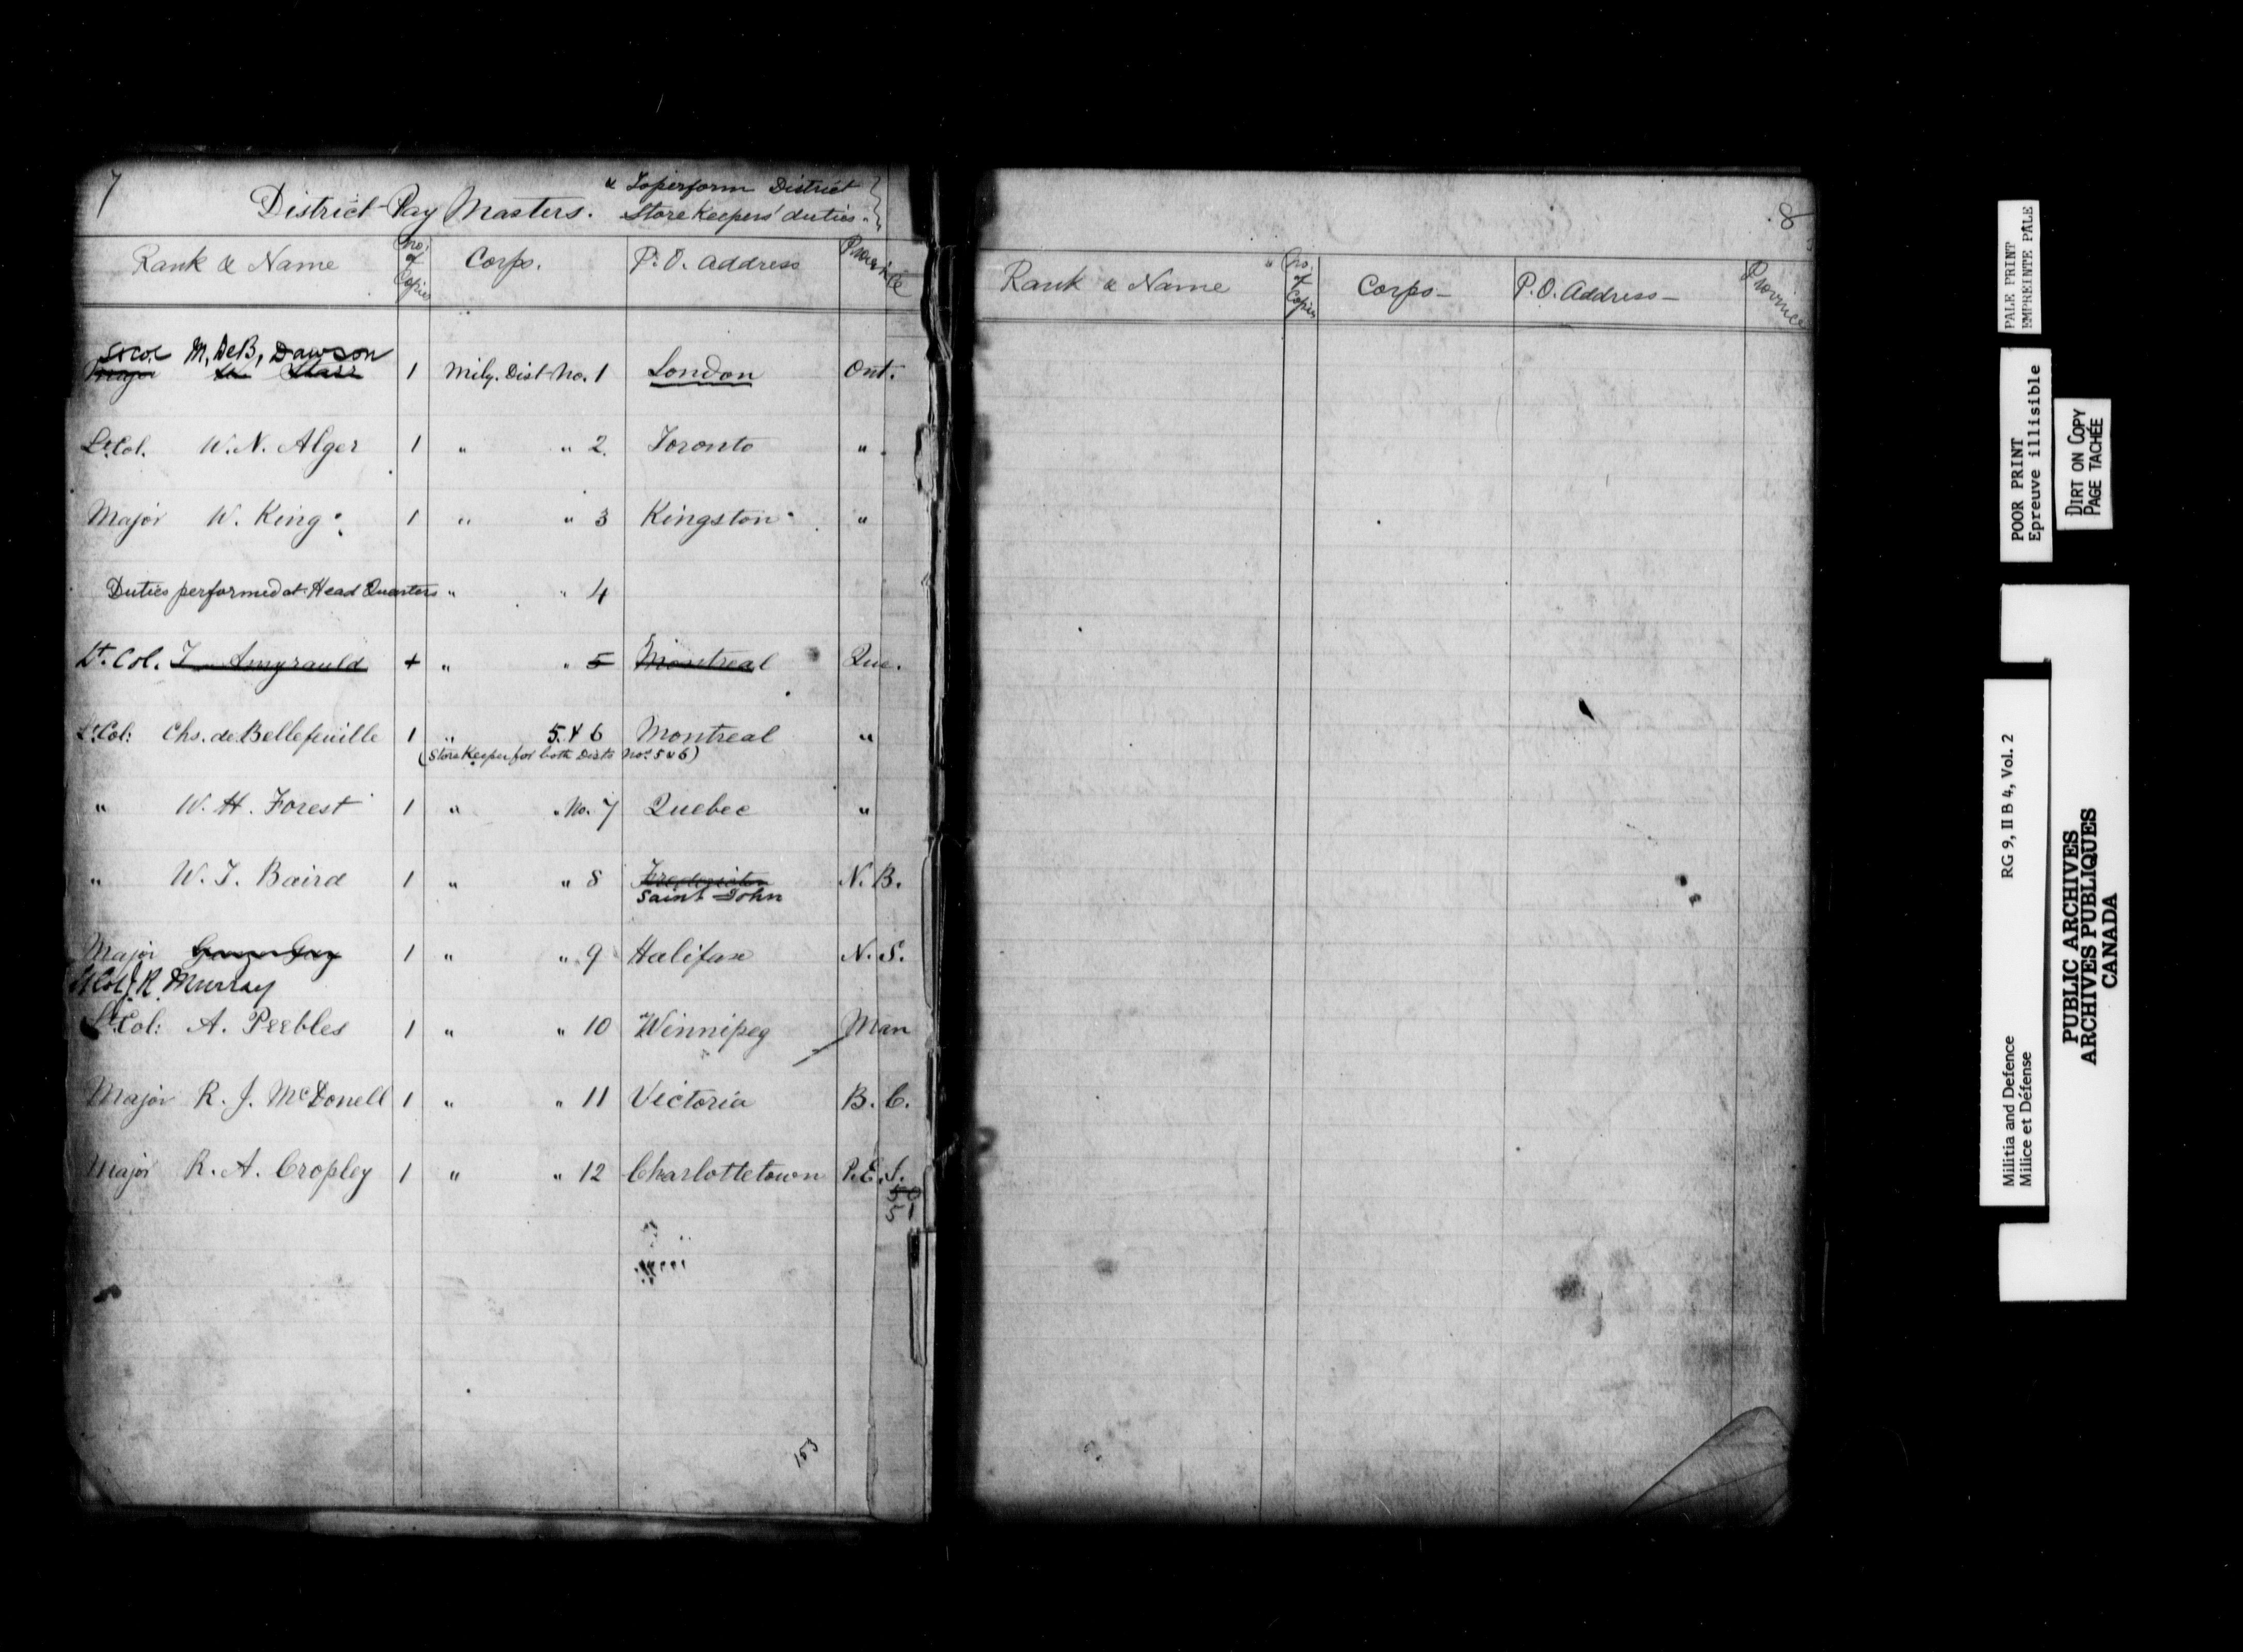 7
District Pay Masters. & To perform District
Store Keepers' duties.
Rank & Name No. of Copies Corps. P. O. Address Province
Lt Col M. DeB. Dawson
Major W Starr 1 Mily. Dist No. 1 London Ont.
Lt. Col. W. N. Alger 1 " " 2. Toronto "
Major W. King 1 " " 3 Kingston "
Duties performed at Head Quarters " " 4
Lt. Col. T Amyrauld 1 " " 5 Montreal Que.
Lt. Col: Chs. de Bellefeuille 1 " 5 & 6 Montreal "
(Store Keeper for both Dists Nos. 5 & 6)
" W. H. Forest 1 " " No. 7 Quebec "
" W. T. Baird 1 " " 8 Fredericton N. B.
Saint John
Major 1 " " 9 Halifax N. S.
Lt Col J. R. Murray
Lt. Col: A. Peebles 1 " " 10 Winnipeg Man
Major R. J. McDonell 1 " " 11 Victoria B. C.
Major R. A. Cropley 1 " " 12 Charlottetown P. E. I.
50
51
153
8
Rank & Name No. of Copies Corps P. O. Address Province
PALE PRINT
EMPREINTE PÂLE
POOR PRINT
Epreuve illisible
DIRT ON COPY
PAGE TACHÉE
Militia and Defence RG 9, II B 4, Vol. 2
Milice et Défense
PUBLIC ARCHIVES
ARCHIVES PUBLIQUES
CANADA